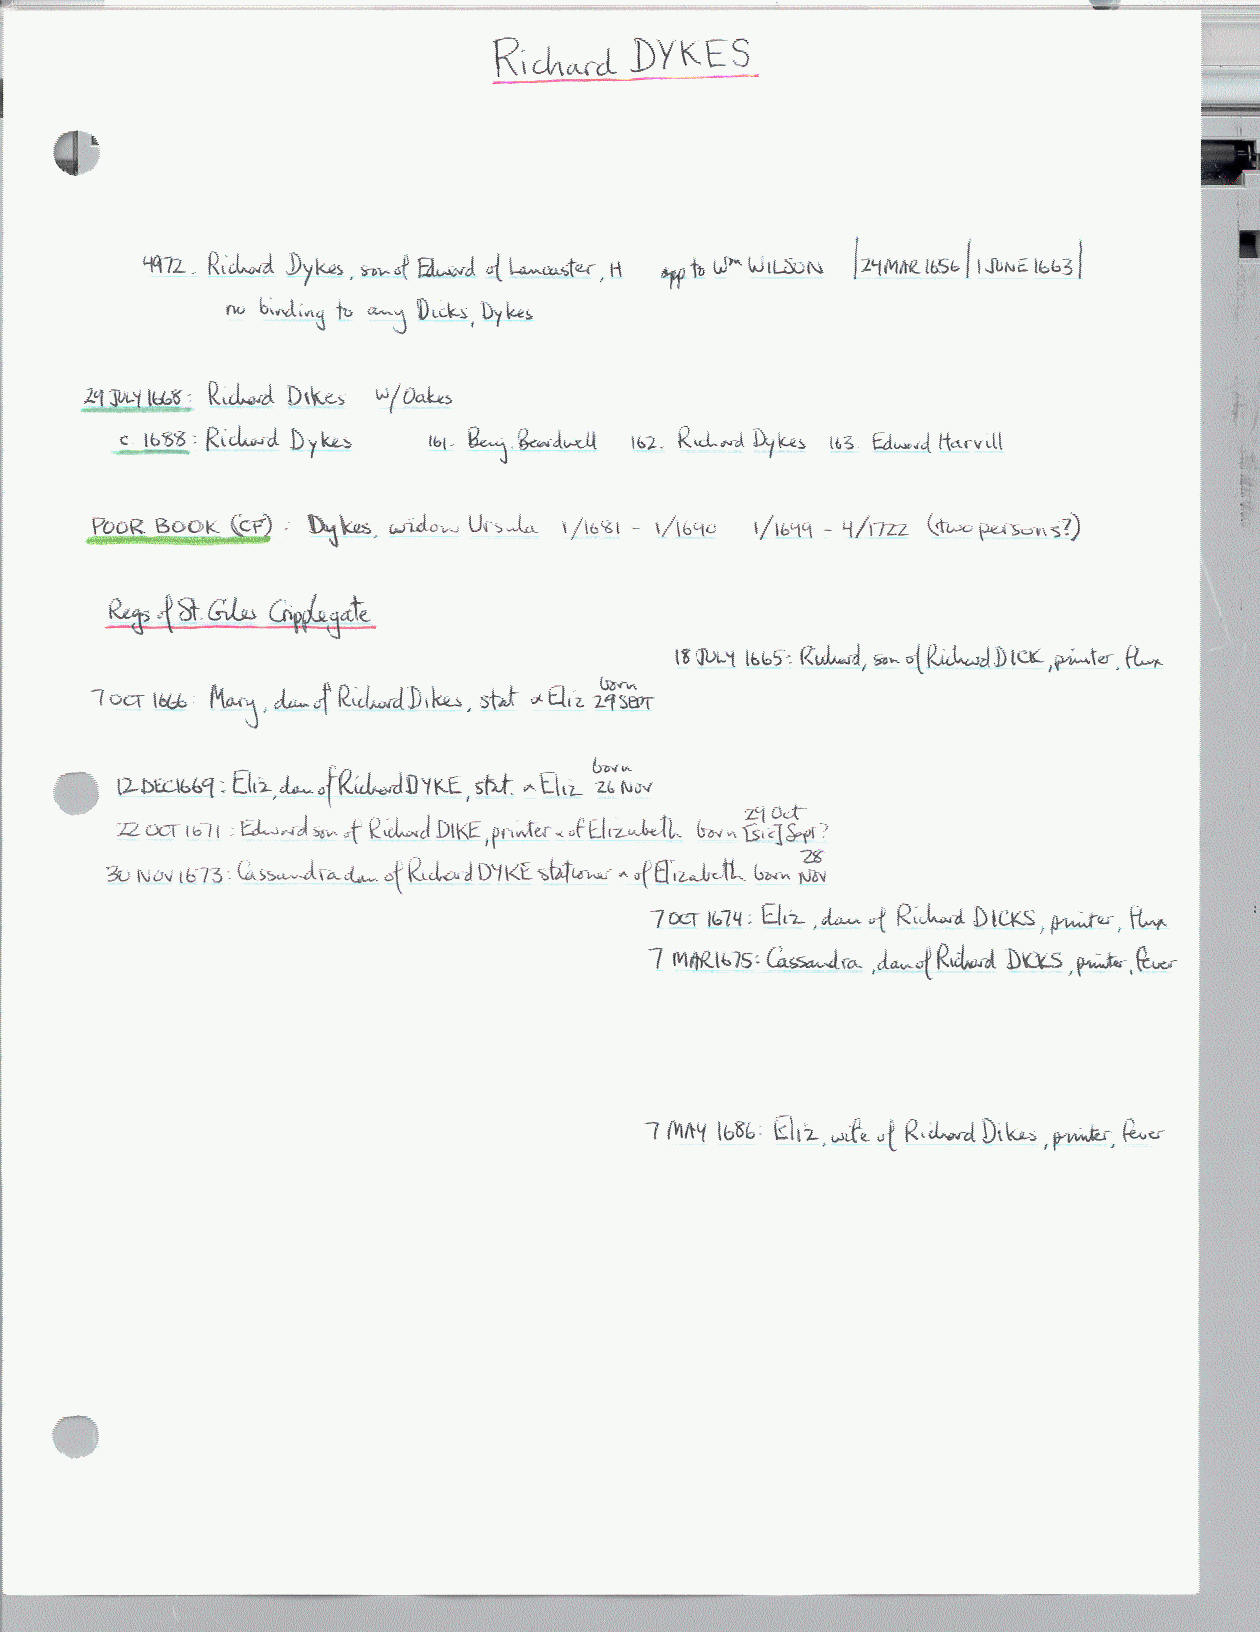 Richard DYKES
4972. Richard Dykes, son of Edward of Lancaster, H app to Wm WILSON |24 MAR 1656| 1 JUNE 1663|
no binding to any Dicks, Dykes
29 JULY 1668: Richard Dikes w/Oakes
c. 1688: Richard Dykes 161. Benj. Beardwell 162. Richard Dykes 163. Edward Harvill
POOR BOOK (CF): Dykes, widow Ursula 1/1681 - 1/1690 1/1699 - 4/1722 (two persons?)
Regs of St. Giles Cripplegate
18 JULY 1665: Richard, son of Richard DICK, printer, flux
born
7 OCT 1666: Mary, dau of Richard Dikes, stat & Eliz 29 SEPT
born
12 DEC 1669: Eliz, dau of Richard DYKE, stat. & Eliz 26 Nov
29 Oct
22 OCT 1671: Edward son of Richard DIKE, printer & of Elizabeth born [sic] Sept?
28
30 NOV 1673: Cassandra dau. of Richard DYKE stationer & of Elizabeth born Nov
7 OCT 1674: Eliz, dau of Richard DICKS, printer, flux
7 MAR 1675: Cassandra, dau of Richard DICKS, printer, fever
7 MAY 1686: Eliz, wife of Richard Dikes, printer, fever